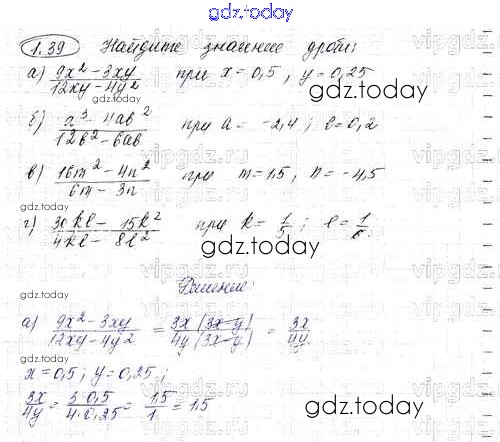 gdz.today
1.39 Найдите значение дроби:
а) (9x² - 3xy)/(12xy - 4y²) при x = 0,5, y = 0,25
gdz.today
б) (a³ - 4ab²)/(12b² - 6ab) при a = -2,4; b = 0,2
gdz.today
в) (16m² - 4n²)/(6m - 3n) при m = 1,5, n = -4,5
г) (30kl - 15k²)/(4kl - 8l²) при k = 1/5; l = 1/
gdz.today
gdz.today
Решение:
а) (9x² - 3xy)/(12xy - 4y²) = 3x(3x-y)/4y(3x-y) = 3x/4y.
gdz.today
x = 0,5; y = 0,25;
3x/4y = 3·0,5/4·0,25 = 1,5/1 = 1,5
gdz.today
gdz.today